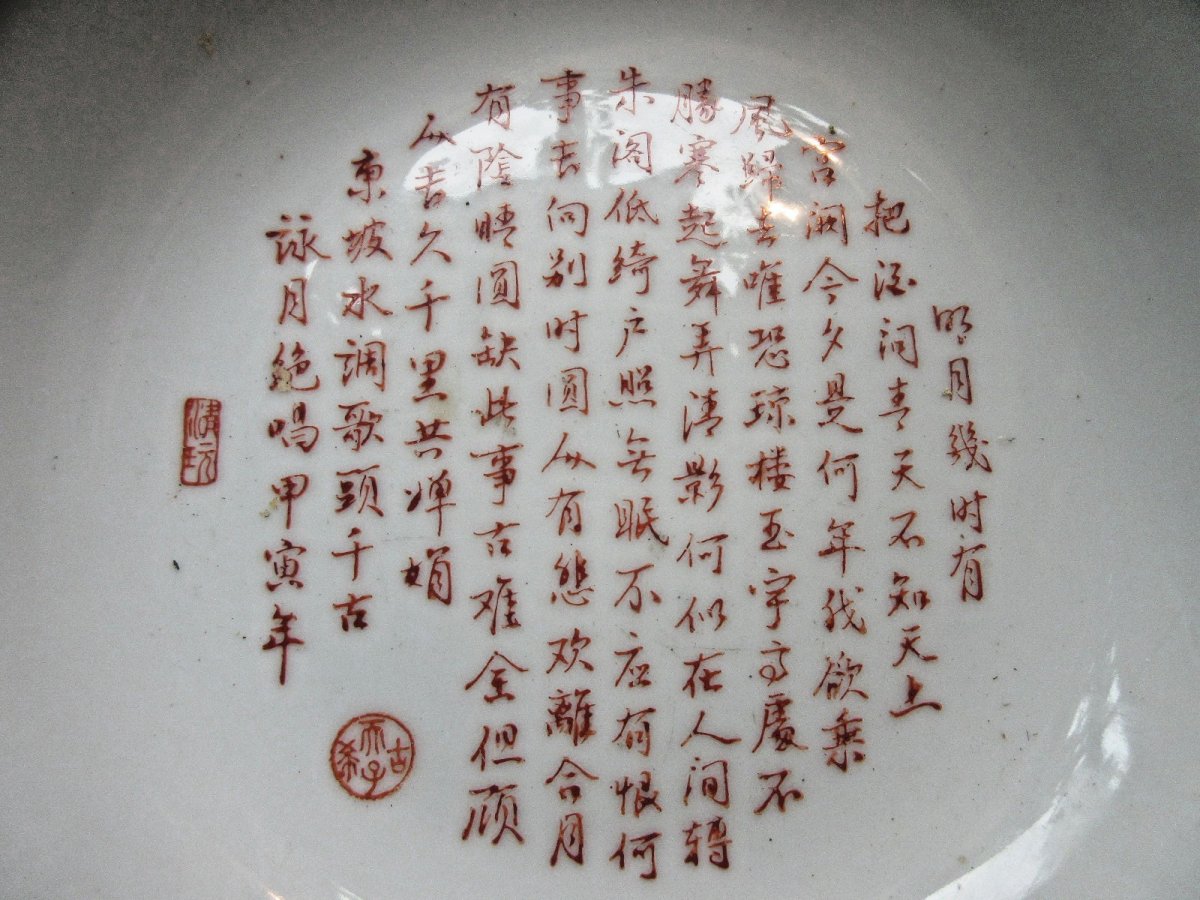 明月幾时有
把酒问青天不知天上
宫阙今夕是何年我欲乘
风歸去唯恐琼楼玉宇高處不
勝寒起舞弄清影何似在人间轉
朱阁低绮户照无眠不应有恨何
事长向别时圆人有悲欢離合月
有陰晴圆缺此事古难全但願
人长久千里共婵娟
东坡水调歌頭千古
詠月绝唱甲寅年
古希天子
清玩